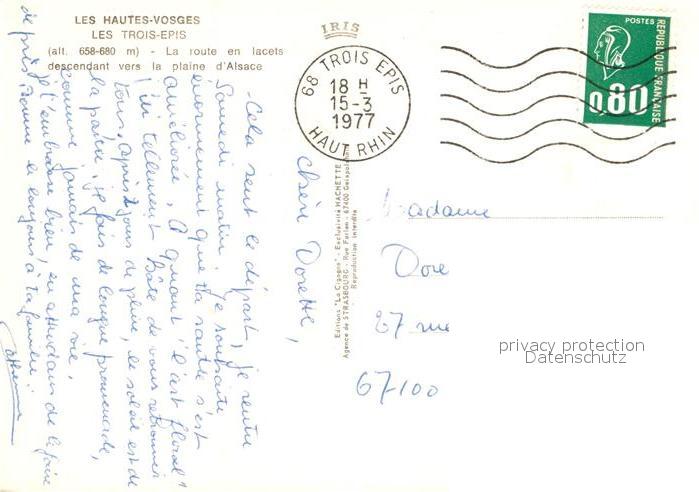 LES HAUTES-VOSGES
LES TROIS-EPIS
(alt. 658-680 m) - La route en lacets
descendant vers la plaine d'Alsace
IRIS
68 TROIS EPIS
18 H
15-3
1977
HAUT RHIN
POSTES
REPUBLIQUE FRANÇAISE
0,80
Editions "La Cigogne" - Exclusivité HACHETTE
Agence de STRASBOURG - Rue Forlen - 67400 Geispolsheim
Reproduction interdite
Chère Dorette,
- Cela sent le départ, je rentre
Samedi matin. Je souhaite
énormément que ta santé s'est
améliorée. A quand
j'ai tellement hâte de vous retrouver
tous, après jours de pluie, le soleil est de
la partie, je fais de longue promenade,
comme jamais de ma vie,
Je t'embrasse bien, en attendant de le faire
de près. Donne le bonjour à ta famille.
Madame
Dore
27 rue
67100
privacy protection
Datenschutz